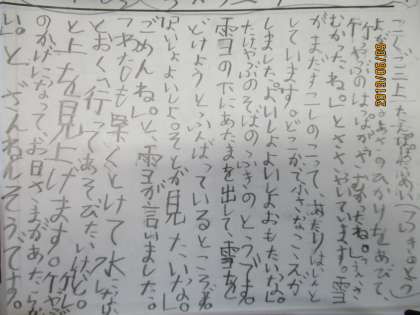 こくご二上 たんぽぽ
よが あけました。あさのひかりをあびて、
竹やぶの竹のはっぱが「さむかったね。」「うん、さ
むかったね。」とささやいています。雪
がまだすこしのこって、あたりはしんと
しています。どこかで小さなこえが
しました。「よいしょよいしょおもたいな。」
たけやぶのそばのふきのとうです。
雪の下にあたまを出して、雪を
どけようと、ふんばっているところです。
「よいしょよいしょ。そとが見たいな。」
「ごめんね。」と、雪が言いました。
「わたしも早くとけて水になり、
とおくへ行ってあそびたいけど。」
と上を見上げます。「竹やぶ
のかげになってお日さまがあたらな
い。」と、ざんねんそうです。
2019/05/09